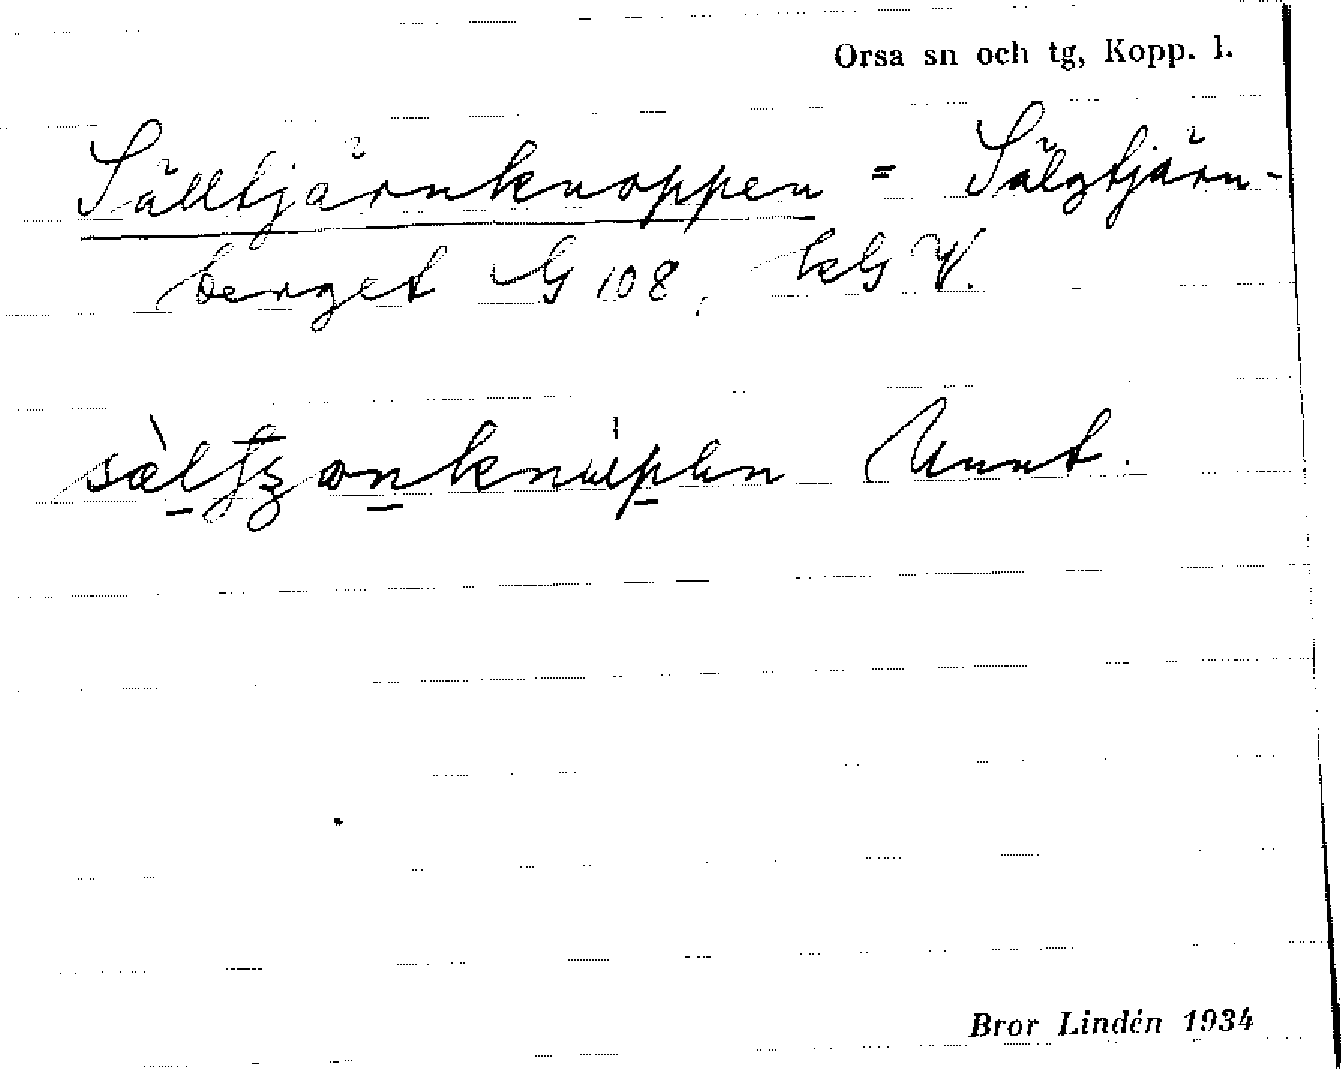 Orsa sn och tg, Kopp. l.
Sälltjärnknoppen = Sälgtjärn-
berget G 108, kG V.
Unnt.
Bror Lindén 1934